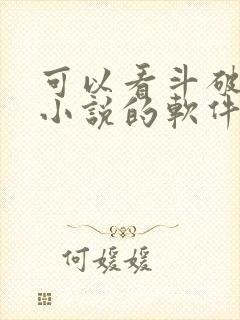 可以看斗破
小說的軟件
何媛媛